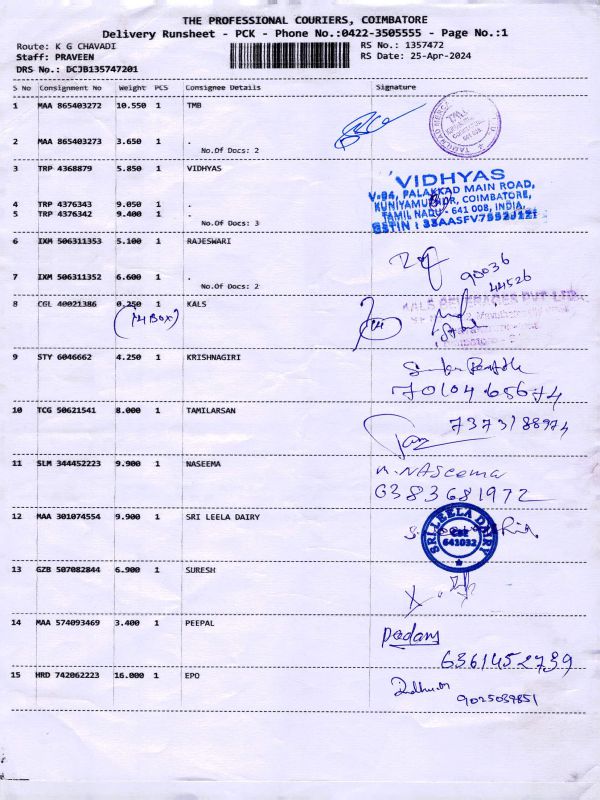 THE PROFESSIONAL COURIERS, COIMBATORE
Delivery Runsheet - PCK - Phone No.:0422-3505555 - Page No.:1
Route: K G CHAVADI
RS No.: 1357472
Staff: PRAVEEN
RS Date: 25-Apr-2024
DRS No.: DCJB135747201
S No Consignment No Weight PCS Consignee Details Signature
1 MAA 865403272 10.550 1 TMB
2 MAA 865403273 3.650 1 .
No.Of Docs: 2
3 TRP 4368879 5.850 1 VIDHYAS
VIDHYAS
V-94, PALAKKAD MAIN ROAD,
KUNIYAMUTHUR, COIMBATORE,
TAMIL NADU - 641 008, INDIA.
4 TRP 4376343 9.050 1 .
5 TRP 4376342 9.400 1 .
No.Of Docs: 3
6 IXM 506311353 5.100 1 RAJESWARI
7 IXM 506311352 6.600 1 .
No.Of Docs: 2
90036
44526
8 CGL 40021386 0.250 1 KALS
(14 BOX)
KALS BEVERAGES PVT LTD
9 STY 6046662 4.250 1 KRISHNAGIRI
10 TCG 50621541 8.000 1 TAMILARSAN
7373188974
11 SLM 344452223 9.900 1 NASEEMA
N. NASeema
6383681972
12 MAA 301074554 9.900 1 SRI LEELA DAIRY
SRI LEELA DAIRY
CBE
641032
13 GZB 507082844 6.900 1 SURESH
14 MAA 574093469 3.400 1 PEEPAL
6361452739
15 HRD 742062223 16.000 1 EPO
9025039851